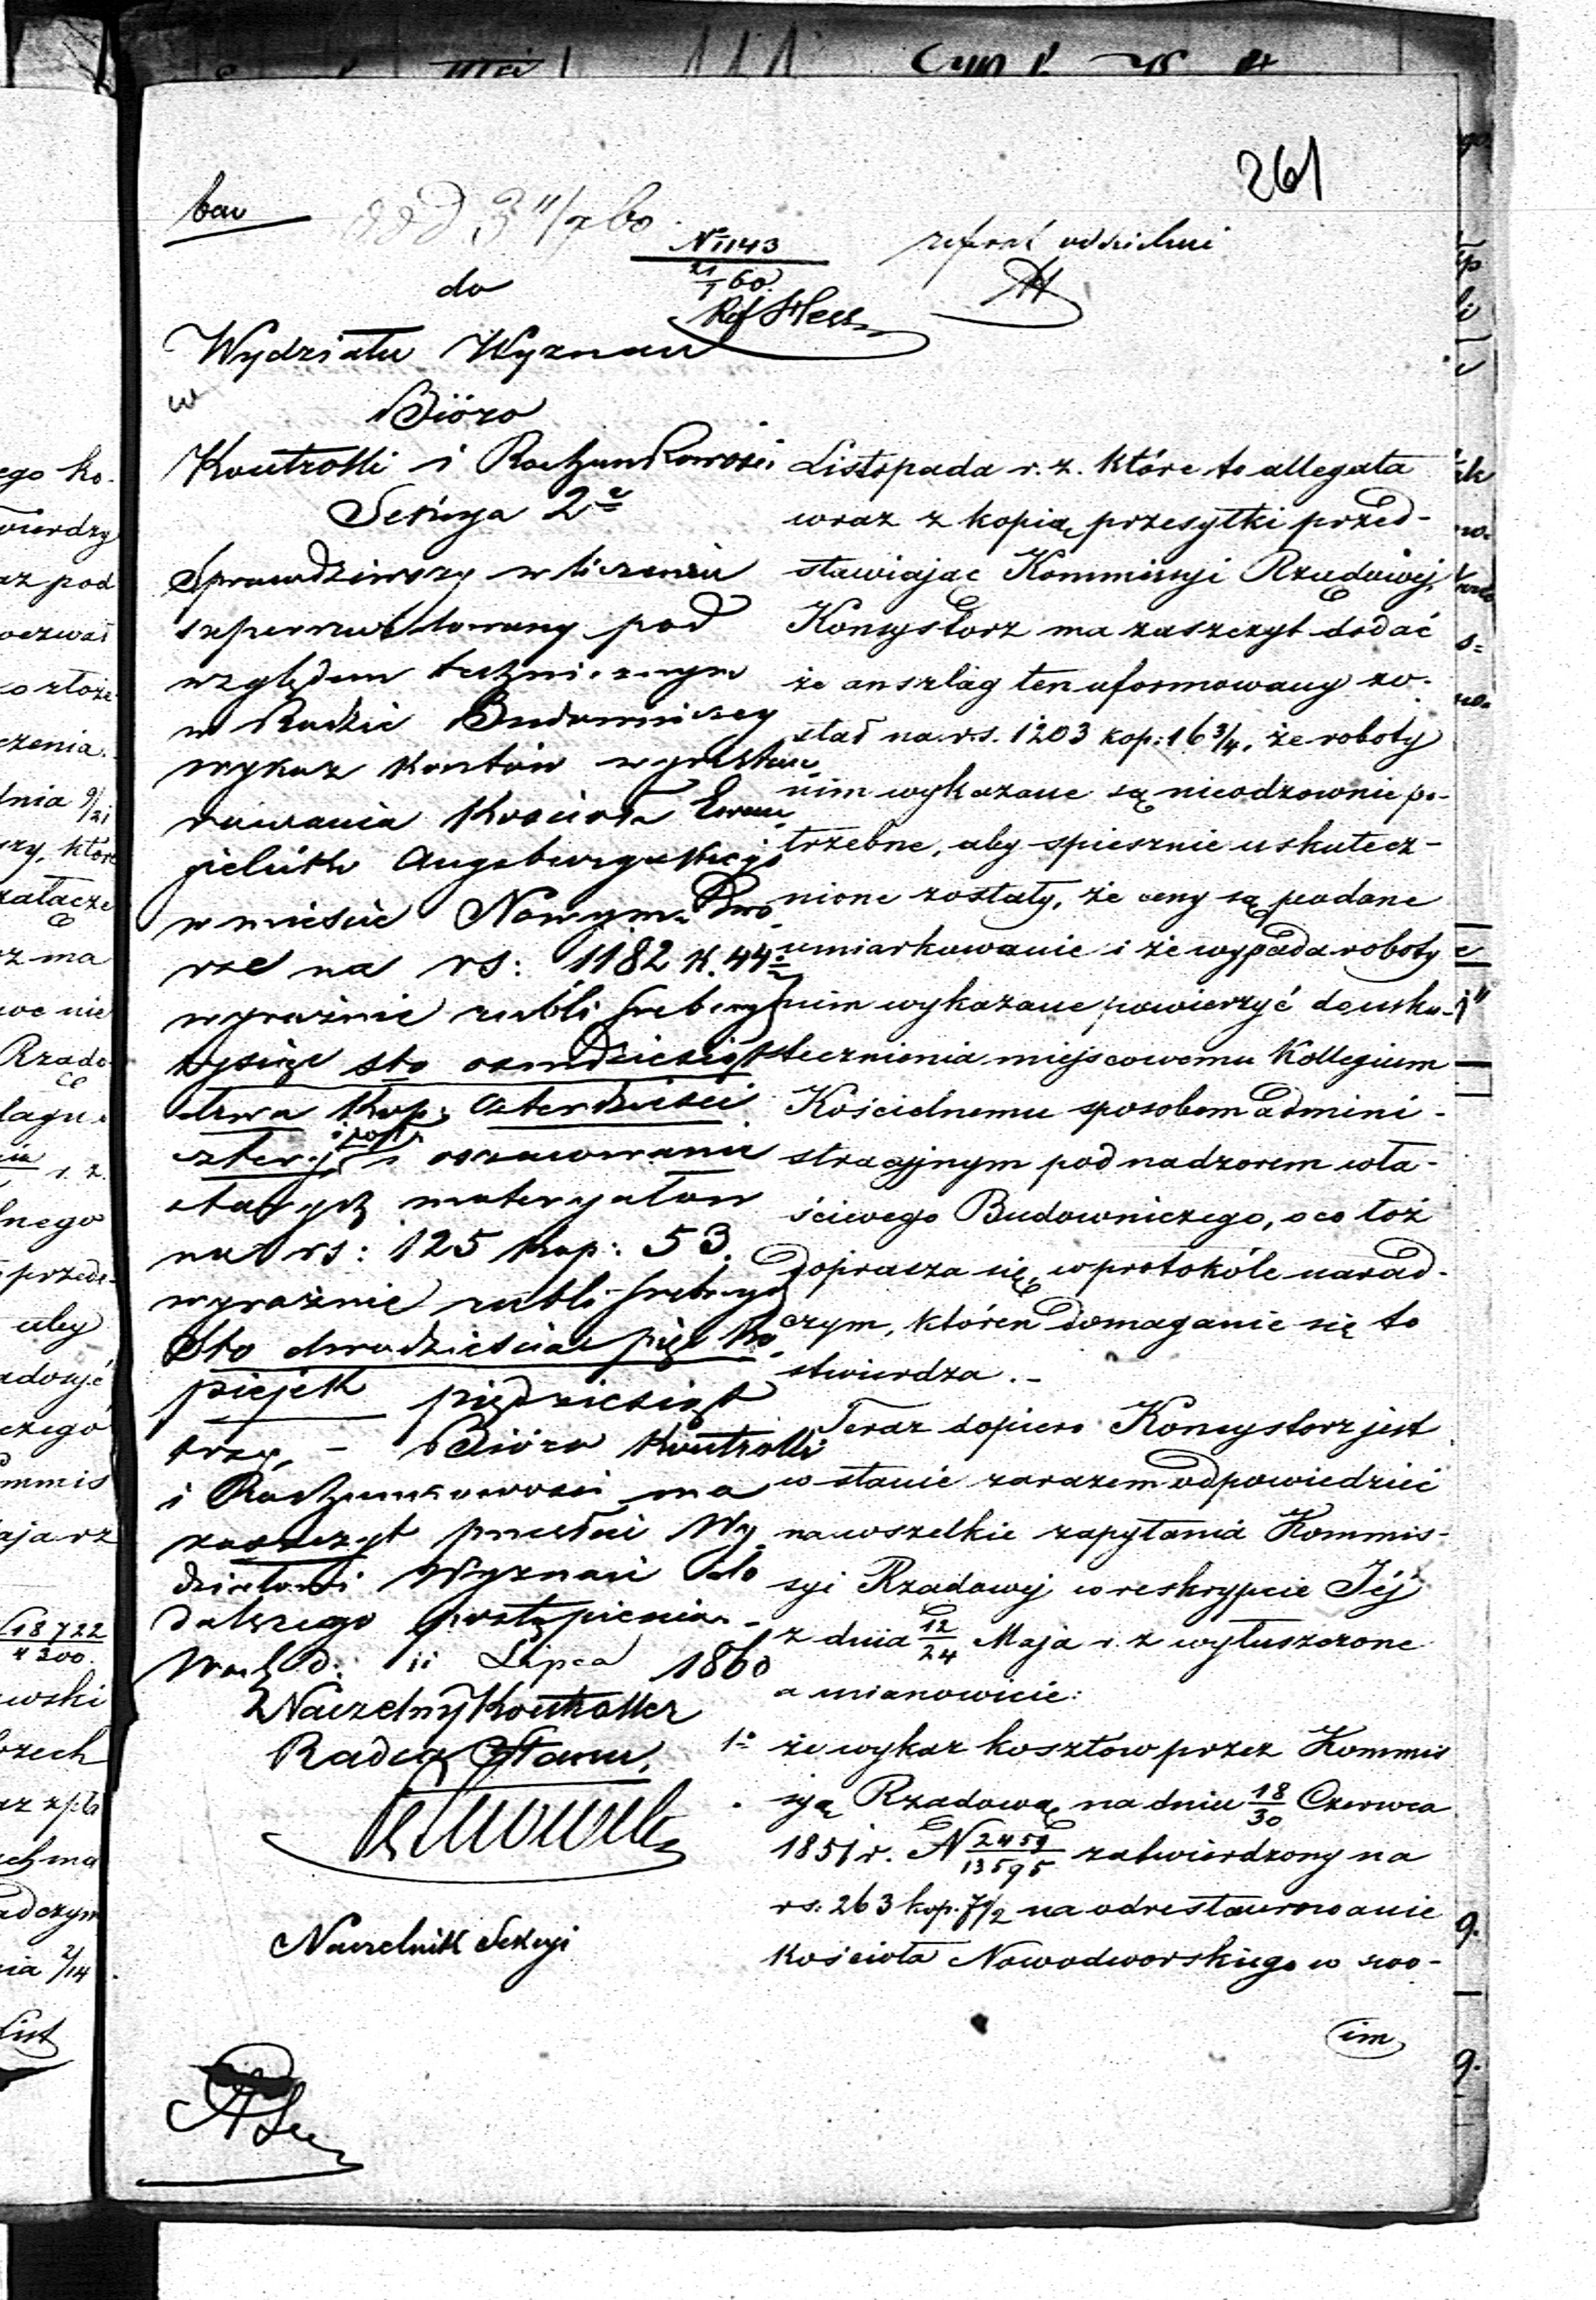 261
bau
11/7 60
Nº 1143
21/7 60.
Ref Hess
referat oddzielni
do
Wydziału Wyznań
w
Biöro
Kontrolli i Rachunkowości
Sekcya 2ª
Sprawdziwszy w liczeniu
superrewidowany pod
względem technicznym
w Radzie Budowniczey
wykaz kosztów wyrestau
rowania Kościoła Ewan
gielicko Augsburgskiego
w mieście Nowym Dwo
rze na rs: 1182 k. 44
wyraźnie rubli srebrnych
tysiąc sto ośmdziesiąt
dwa kop: czterdzieści
cztery i oszacowanie
starych materyałow
na rs: 125 kop: 53.
wyraźnie rubli srebrnych
Sto dwadzieścia pięć ko
piejek pięćdziesiąt
trzy, – Bióro Kontrolli
i Rachunkowości ma
zaszczyt przesłać Wy
działowi Wyznań do
dalszego postąpienia. –
d: 11 Lipca 1860
Naczelny Kontroller
Radca Stanu,
Naczelnik Sekcyi
Listopada r. z. które to allegata
wraz z kopią przesyłki przed-
stawiając Kommissyi Rządowéj,
Konsystorz ma zaszczyt dodać
że anszlag ten uformowany zo-
stał na rs. 1203 kop: 16 3/4, że roboty
nim wykazane są nieodzownie po-
trzebne, aby spiesznie uskutecz-
nione zostały, że ceny są podane
umiarkowanie i że wypada roboty
nim wykazane powierzyć do usku-
tecznienia miejscowemu Kollegium
Kościelnemu sposobem admini-
stracyjnym pod nadzorem wła-
ściwego Budowniczego, o co toż
doprasza się, w protokóle narad-
czym, któren domaganie się to
stwierdza. –
Teraz dopiero Konsystorz jest
w stanie zarazem odpowiedzieć
na wszelkie zapytania Kommis-
syi Rządowej w reskrypcie Jéj
z dnia 12/24 Maja r. z wyłuszczone
a mianowicie:
1º że wykaz kosztów przez Kommis
syą Rządową na dniu 18/30 Czerwca
1851 r. N 2459/13595 zatwierdzony na
rs. 263 kop. 7 1/2 na odrestaurowanie
kościoła Nowodworskiego w swo-
im